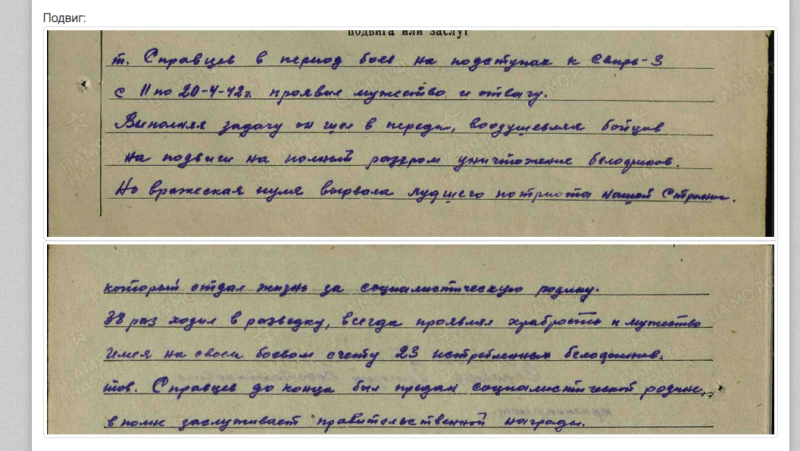 Подвиг:
подвига или заслуг
т. Справцев в период боев на подступах к Свирь-3
с 11 по 20-4-42г. проявил мужество и отвагу.
Выполняя задачу он шел в переди, воодушевляя бойцов
на подвиги на полный разгром уничтожение белофинов.
Но вражеская пуля вырвала лудшего потриота нашей Страны.
который отдал жизнь за социалистическую родину.
раз ходил в разведку, всегда проявлял храбрость и мужество
имея на своем боевом счету 23 истребленных белофинов.
тов. Справцев до конца был предан социалистической родине,
заслуживает правительственной награды.